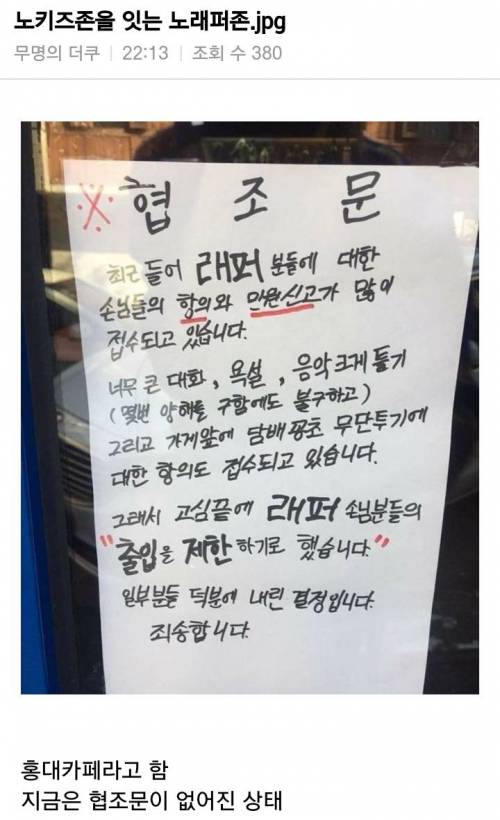 노키즈존을 잇는 노래퍼존.jpg
무명의 더쿠 | 22:13 | 조회 수 380
※ 협 조 문
최근 들어 래퍼 분들에 대한
손님들의 항의와 민원신고가 많이
접수되고 있습니다.
너무 큰 대화, 욕설, 음악크게 틀기
(몇번 양해를 구함에도 불구하고)
그리고 가게앞에 담배꽁초 무단투기에
대한 항의도 접수되고 있습니다.
그래서 고심끝에 래퍼 손님분들의
"출입을 제한하기로 했습니다"
일부분들 덕분에 내린 결정입니다.
죄송합니다.
홍대카페라고 함
지금은 협조문이 없어진 상태